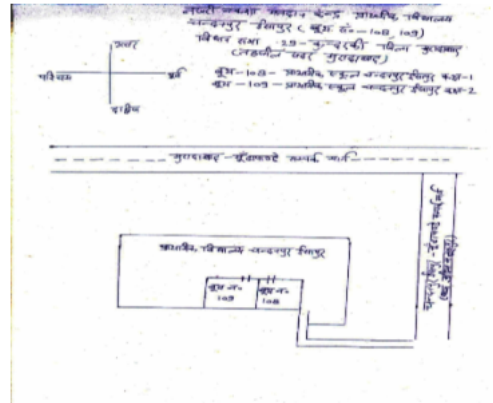 नजरी नक्शा मतदान केन्द्र प्राथमिक विद्यालय
चन्दनपुर ईसापुर (बूथ सं०-108, 109)
विधान सभा -29- कुन्दरकी जिला मुरादाबाद
(तहसील सदर मुरादाबाद)
बूथ-108- प्राथमिक स्कूल चन्दनपुर ईसापुर कक्ष-1
बूथ-109- प्राथमिक स्कूल चन्दनपुर ईसापुर कक्ष-2
उत्तर
पश्चिम
पूर्व
दक्षिण
मुरादाबाद - सम्पर्क मार्ग
प्राथमिक विद्यालय चन्दनपुर ईसापुर
बूथ नं०
109
बूथ नं०
108